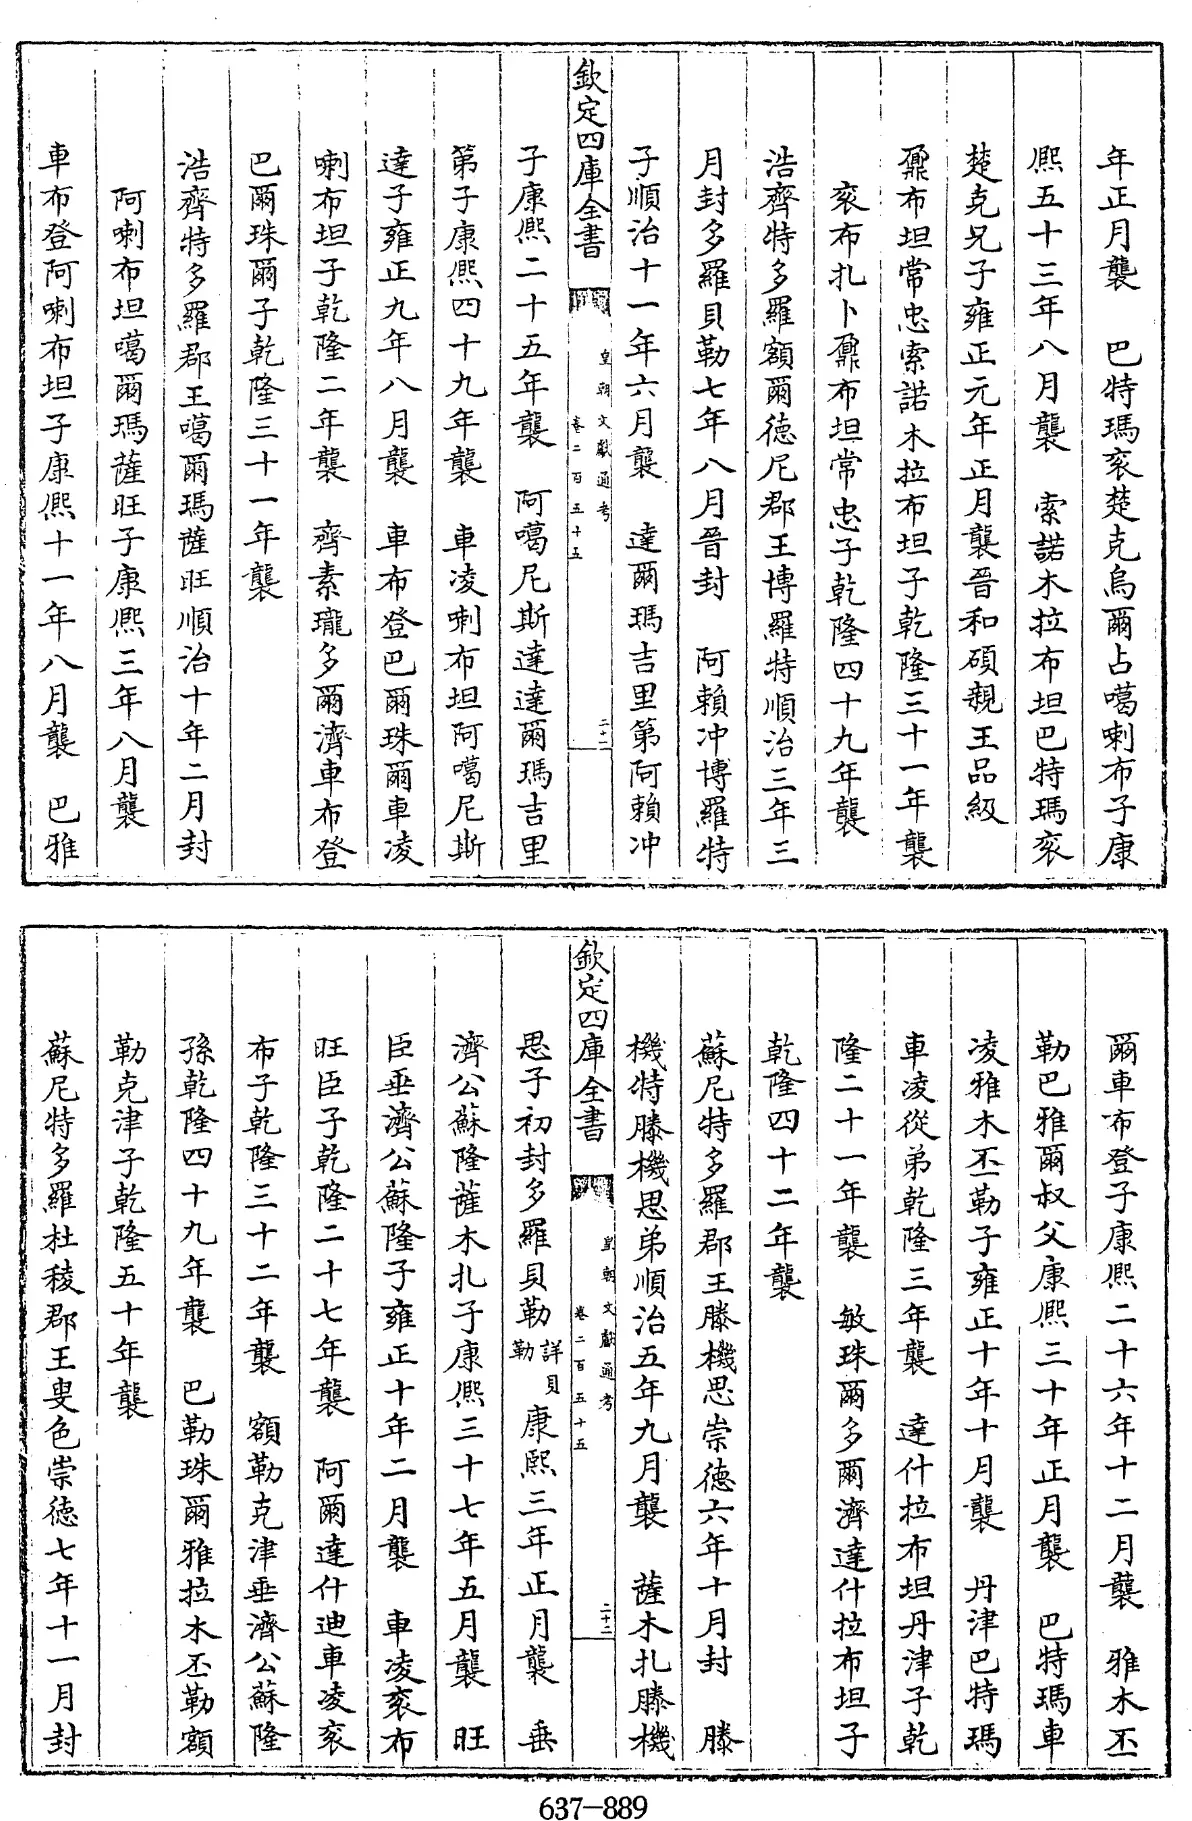 年正月襲　巴特瑪衮楚克烏爾占噶喇布子康
熙五十三年八月襲　索諾木拉布坦巴特瑪衮
楚克兄子雍正元年正月襲晉和碩親王品級
鼐布坦常忠索諾木拉布坦子乾隆三十一年襲
衮布扎卜鼐布坦常忠子乾隆四十九年襲
浩齊特多羅額爾德尼郡王博羅特順治三年三
月封多羅貝勒七年八月晉封　阿賴冲博羅特
子順治十一年六月襲　達爾瑪吉里第阿賴冲
欽定四庫全書　皇朝文獻通考　卷二百五十五　二十二
子康熙二十五年襲　阿噶尼斯達達爾瑪吉里
第子康熙四十九年襲　車凌喇布坦阿噶尼斯
達子雍正九年八月襲　車布登巴爾珠爾車凌
喇布坦子乾隆二年襲　齊素瓏多爾濟車布登
巴爾珠爾子乾隆三十一年襲
浩齊特多羅郡王噶爾瑪薩旺順治十年二月封
阿喇布坦噶爾瑪薩旺子康熙三年八月襲
車布登阿喇布坦子康熙十一年八月襲　巴雅
爾車布登子康熙二十六年十二月襲　雅木丕
勒巴雅爾叔父康熙三十年正月襲　巴特瑪車
凌雅木丕勒子雍正十年十月襲　丹津巴特瑪
車凌從弟乾隆三年襲　達什拉布坦丹津子乾
隆二十一年襲　敏珠爾多爾濟達什拉布坦子
乾隆四十二年襲
蘇尼特多羅郡王滕機思崇德六年十月封　滕
機特滕機思弟順治五年九月襲　薩木扎滕機
欽定四庫全書　皇朝文獻通考　卷二百五十五　二十三
思子初封多羅貝勒詳貝勒康熙三年正月襲　垂
濟公蘇隆薩木扎子康熙三十七年五月襲　旺
臣垂濟公蘇隆子雍正十年二月襲　車凌衮布
旺臣子乾隆二十七年襲　阿爾達什迪車凌衮
布子乾隆三十二年襲　額勒克津垂濟公蘇隆
孫乾隆四十九年襲　巴勒珠爾雅拉木丕勒額
勒克津子乾隆五十年襲
蘇尼特多羅杜稜郡王叟色崇德七年十一月封
637-889